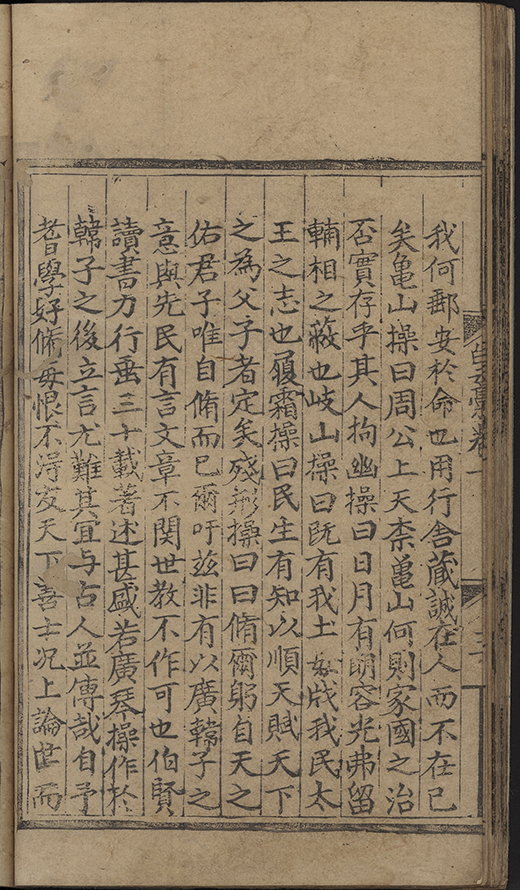 我何鄙安於命也用行舍藏誠在人而不在已
矣亀山操曰周公上天柰亀山何則家國之治
否實存乎其人拘幽操曰日月有明容光弗留
輔相之蔽也岐山操曰旣有我土如戕我民太
王之志也履霜操曰民生有知以順天賦天下
之為父子者定矣殘形操曰曰脩爾躬自天之
佑君子唯自脩而已爾吁兹非有以廣韓子之
意與先民有言文章不関世教不作可也伯賢
讀書力行垂三十載著述甚盛若廣琴操作於
韓子之後立言尤難其冝与古人並傳哉自予
耆學好脩每恨不淂友天下善士况上論世而
白雲稾卷一
三